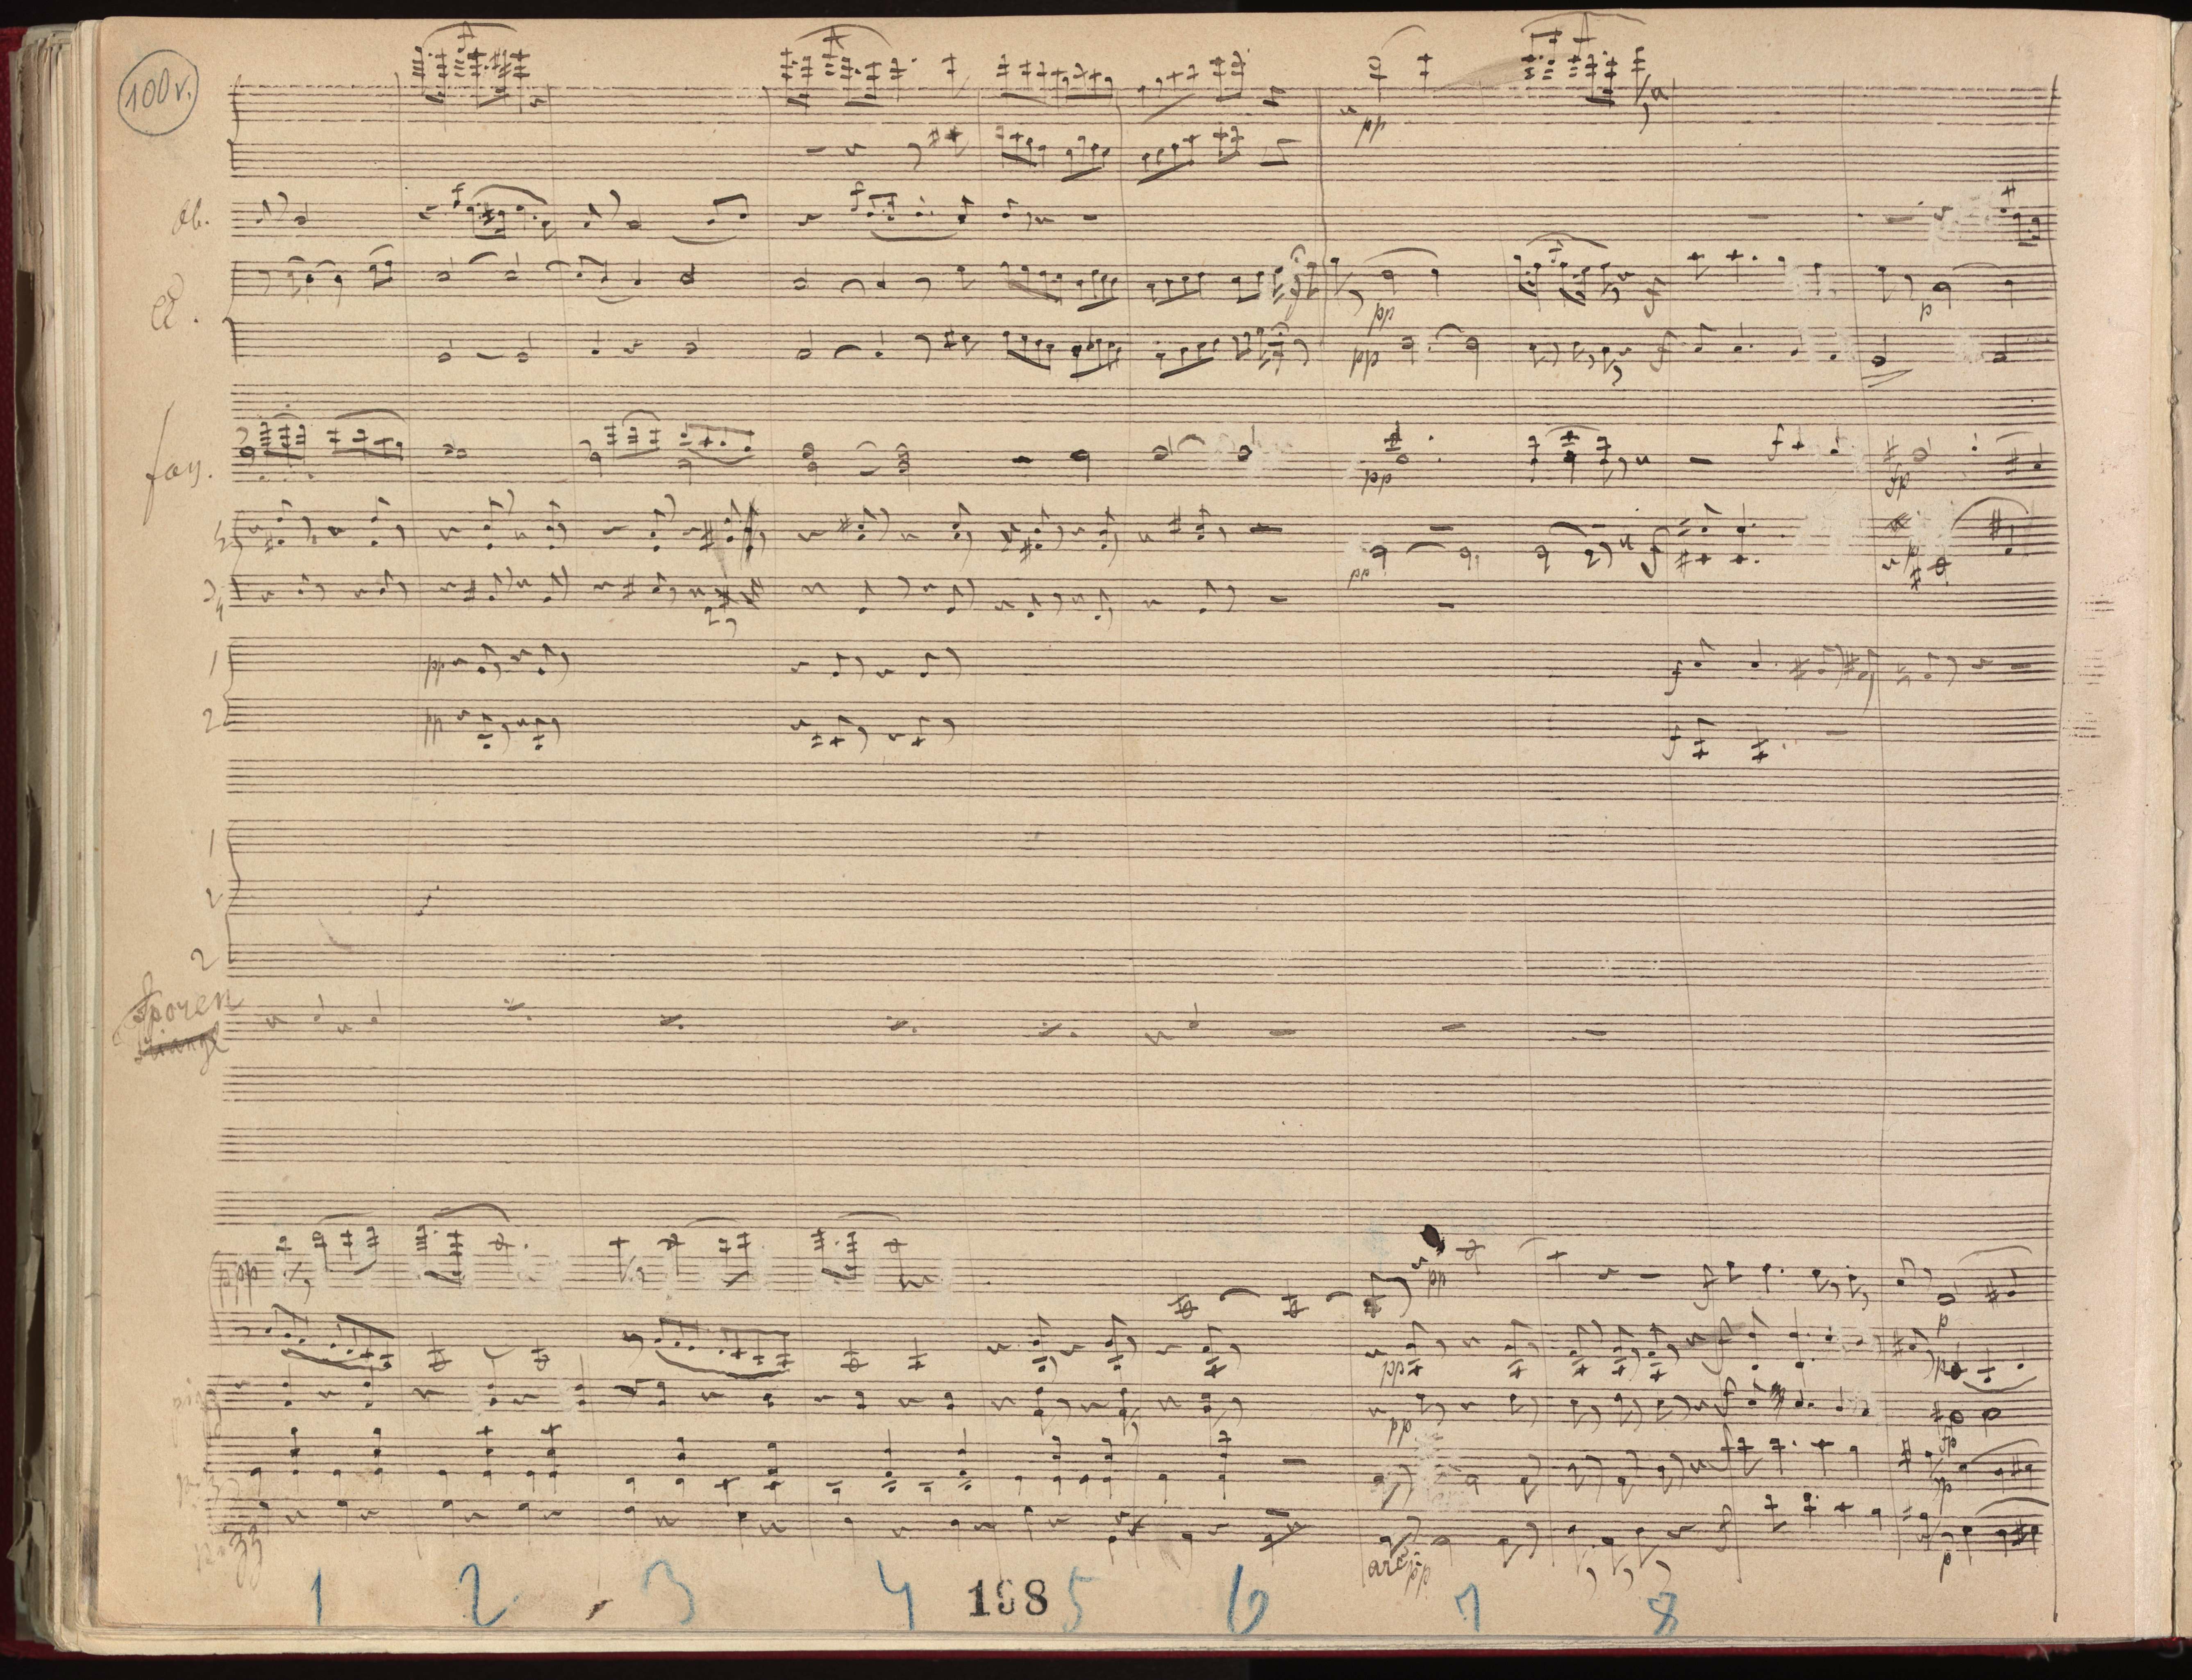 100v.
pp
Ob.
f
f
Cl.
pp
f
p
pp
f
fag.
pp
f
fp
pp
f
p
1
pp
f
2
pp
f
1
2
2
Sporen
Triangl
ppp
pp
f
p
pp
f
p
pizz
pp
f
fp
pizz
f
p
pizz
arco
pp
f
p
1 2 3 4 198 5 6 7 8